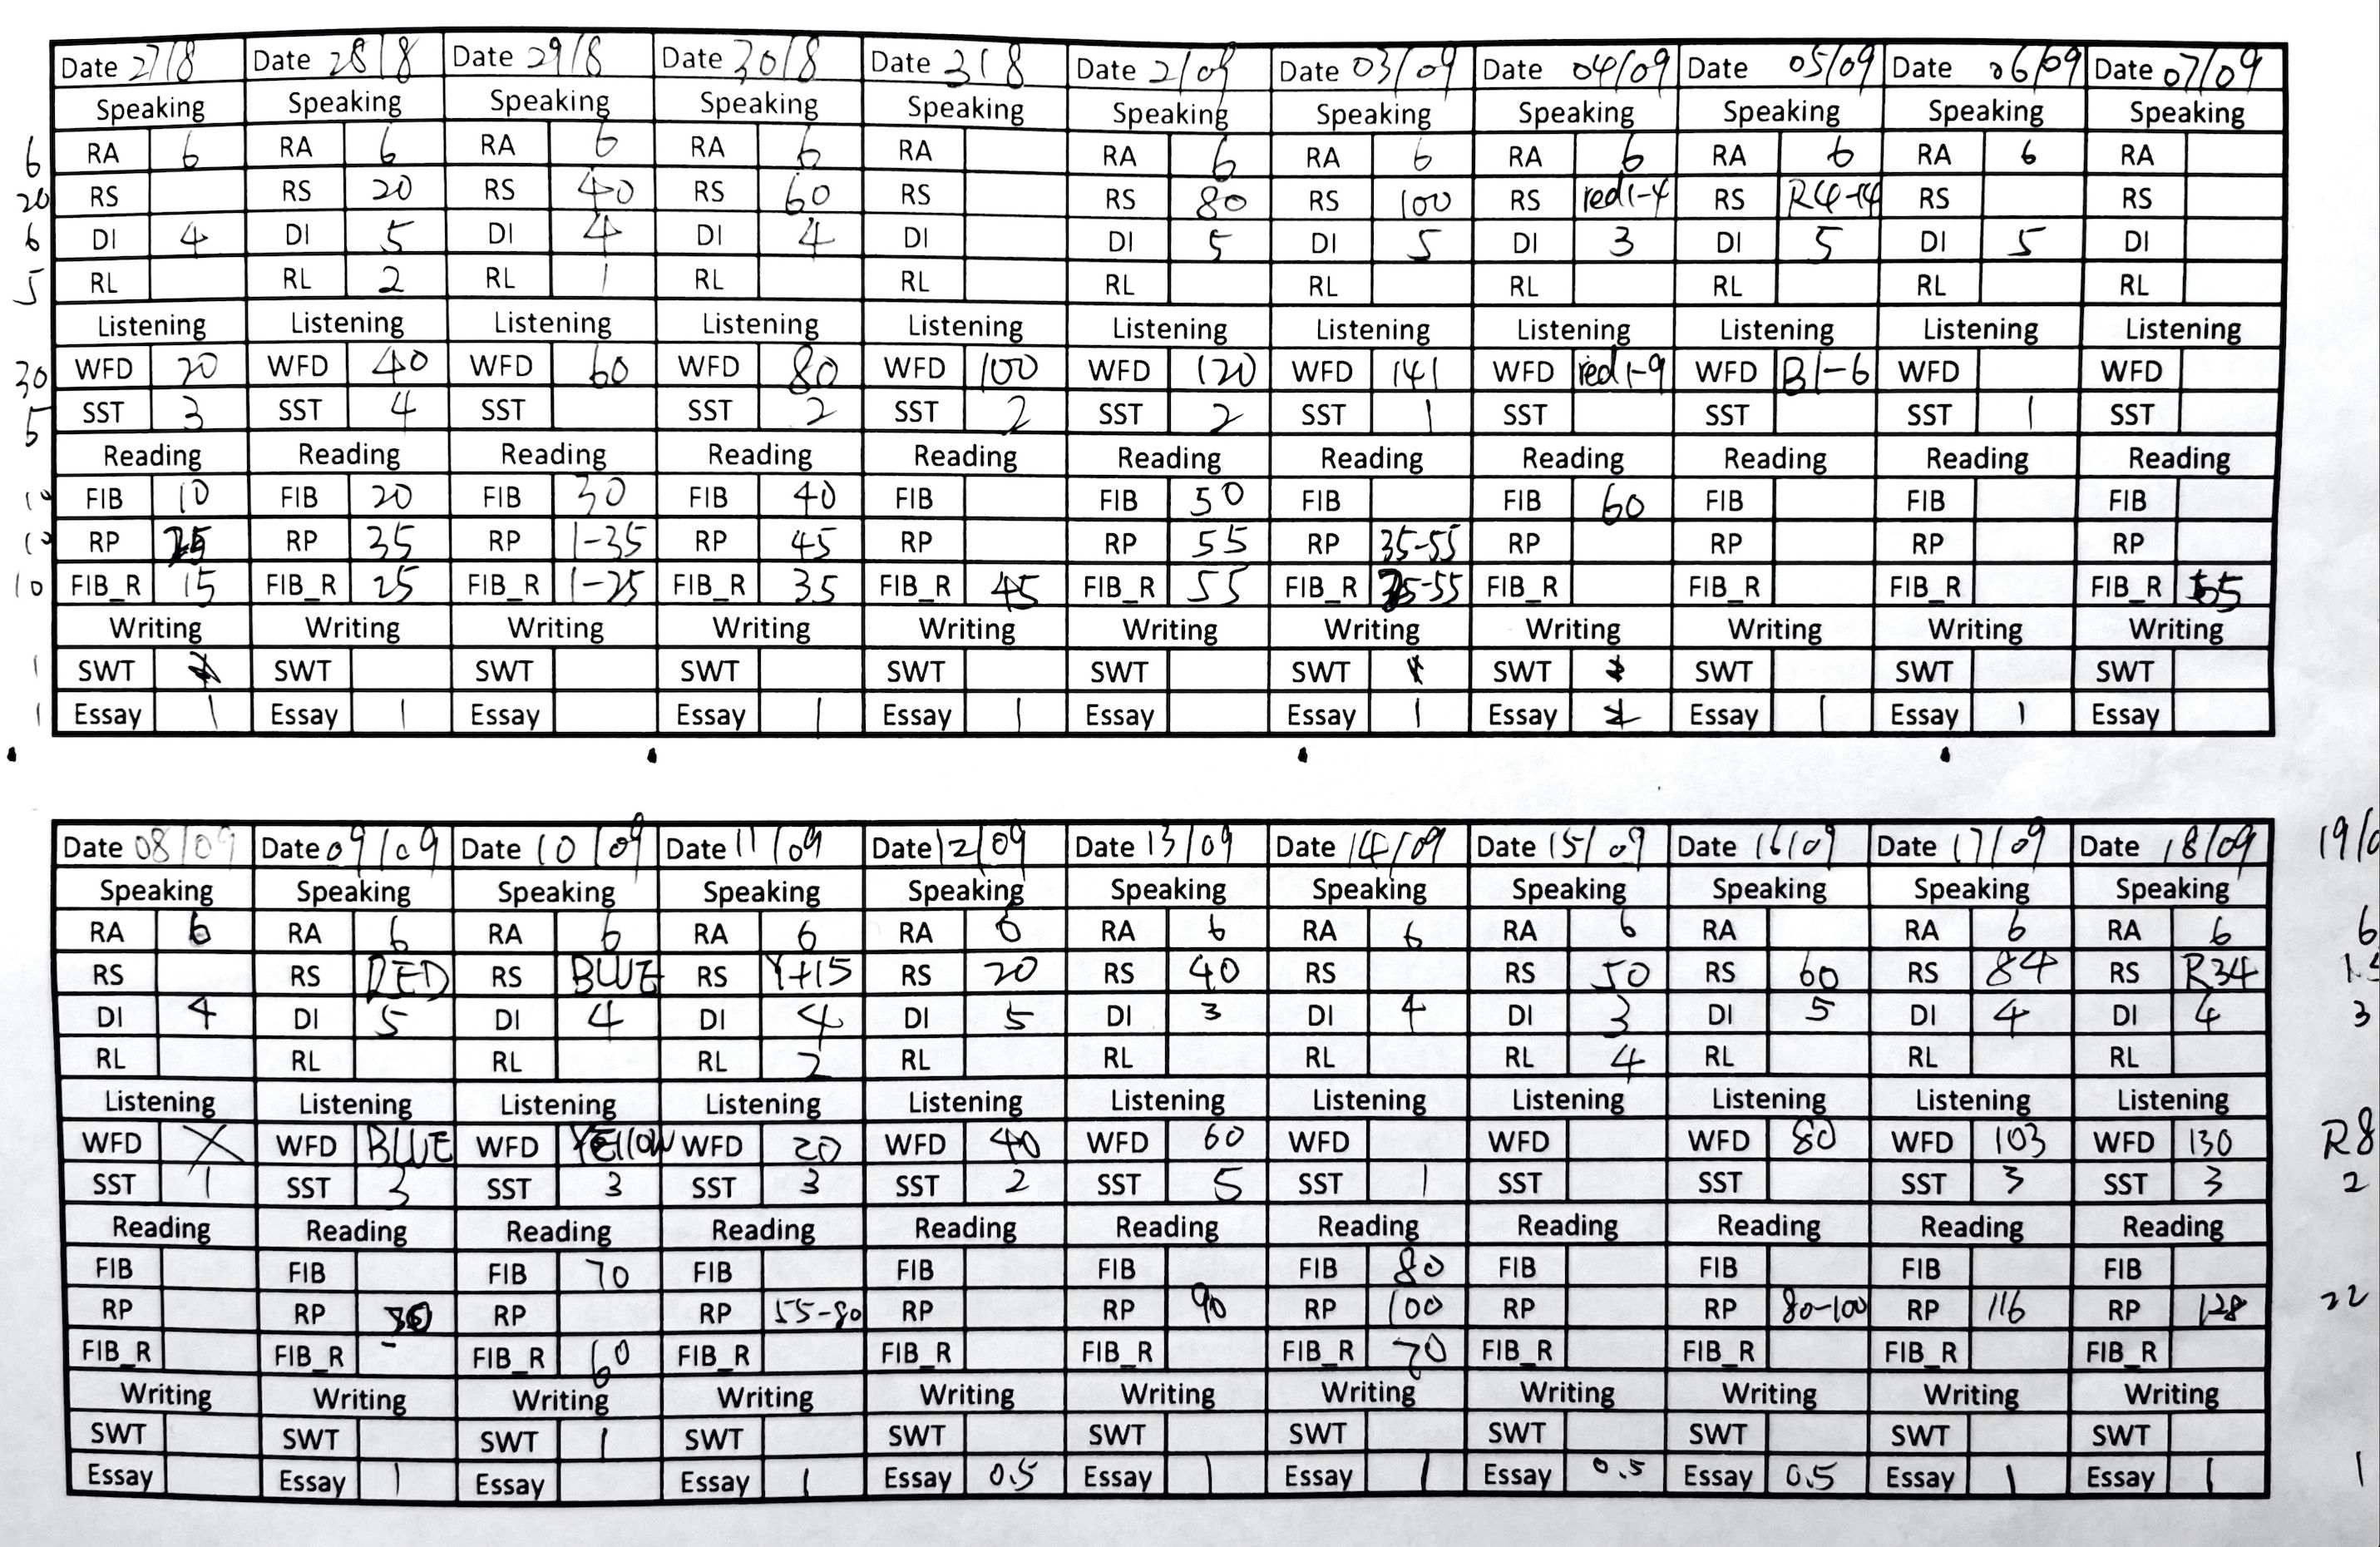 Date 27/8 Date 28/8 Date 29/8 Date 30/8 Date 31/8 Date 2/09 Date 03/09 Date 04/09 Date 05/09 Date 06/09 Date 07/09
Speaking Speaking Speaking Speaking Speaking Speaking Speaking Speaking Speaking Speaking Speaking
6 RA 6 RA 6 RA 6 RA 6 RA RA 6 RA 6 RA 6 RA 6 RA 6 RA
20 RS RS 20 RS 40 RS 60 RS RS 80 RS 100 RS red1-4 RS R4-14 RS RS
6 DI 4 DI 5 DI 4 DI 4 DI DI 5 DI 5 DI 3 DI 5 DI 5 DI
5 RL RL 2 RL 1 RL RL RL RL RL RL RL RL
Listening Listening Listening Listening Listening Listening Listening Listening Listening Listening Listening
30 WFD 20 WFD 40 WFD 60 WFD 80 WFD 100 WFD 120 WFD 141 WFD red1-9 WFD B1-6 WFD WFD
5 SST 3 SST 4 SST SST 2 SST 2 SST 2 SST 1 SST SST SST 1 SST
Reading Reading Reading Reading Reading Reading Reading Reading Reading Reading Reading
10 FIB 10 FIB 20 FIB 30 FIB 40 FIB FIB 50 FIB FIB 60 FIB FIB FIB
10 RP 25 RP 35 RP 1-35 RP 45 RP RP 55 RP 35-55 RP RP RP RP
10 FIB_R 15 FIB_R 25 FIB_R 1-25 FIB_R 35 FIB_R 45 FIB_R 55 FIB_R FIB_R FIB_R FIB_R FIB_R
Writing Writing Writing Writing Writing Writing Writing Writing Writing Writing Writing
1 SWT SWT SWT SWT SWT SWT SWT SWT SWT SWT SWT
1 Essay 1 Essay 1 Essay Essay 1 Essay 1 Essay Essay 1 Essay Essay 1 Essay 1 Essay
Date 08/09 Date 09/09 Date 10/09 Date 11/09 Date 12/09 Date 13/09 Date 14/09 Date 15/09 Date 16/09 Date 17/09 Date 18/09 19/0
Speaking Speaking Speaking Speaking Speaking Speaking Speaking Speaking Speaking Speaking Speaking
RA 6 RA 6 RA 6 RA 6 RA 6 RA 6 RA 6 RA 6 RA RA 6 RA 6 6
RS RS RED RS BLUE RS Y+15 RS 20 RS 40 RS RS 50 RS 60 RS 84 RS R34
DI 4 DI 5 DI 4 DI 4 DI 5 DI 3 DI 4 DI 3 DI 5 DI 4 DI 4 3
RL RL RL RL 2 RL RL RL RL 4 RL RL RL
Listening Listening Listening Listening Listening Listening Listening Listening Listening Listening Listening
WFD X WFD BLUE WFD YEllOW WFD 20 WFD 40 WFD 60 WFD WFD WFD 80 WFD 103 WFD 130 R8
SST 1 SST 3 SST 3 SST 3 SST 2 SST 5 SST 1 SST SST SST 3 SST 3 2
Reading Reading Reading Reading Reading Reading Reading Reading Reading Reading Reading
FIB FIB FIB 70 FIB FIB FIB FIB 80 FIB FIB FIB FIB
RP RP RP RP 55-80 RP RP 90 RP 100 RP RP 80-100 RP 116 RP 128 22
FIB_R FIB_R FIB_R 60 FIB_R FIB_R FIB_R FIB_R 70 FIB_R FIB_R FIB_R FIB_R
Writing Writing Writing Writing Writing Writing Writing Writing Writing Writing Writing
SWT SWT SWT 1 SWT SWT SWT SWT SWT SWT SWT SWT
Essay Essay 1 Essay Essay 1 Essay 0.5 Essay 1 Essay 1 Essay 0.5 Essay 0.5 Essay 1 Essay 1 1